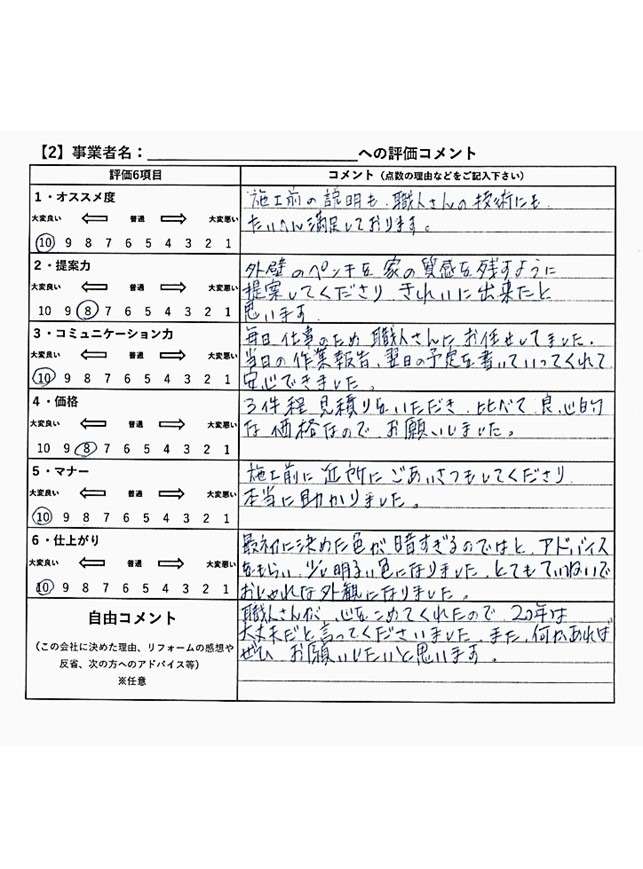 【2】事業者名：＿＿＿＿＿＿＿＿＿＿への評価コメント
評価6項目
コメント（点数の理由などをご記入下さい）
1・オススメ度
大変良い 普通 大変悪い
10 9 8 7 6 5 4 3 2 1
施工前の説明も、職人さんの技術にも
たいへん満足しております。
2・提案力
大変良い 普通 大変悪い
10 9 8 7 6 5 4 3 2 1
外壁のペンキを家の質感を残すように
提案してくださり きれいに出来たと
思います
3・コミュニケーション力
大変良い 普通 大変悪い
10 9 8 7 6 5 4 3 2 1
毎日仕事のため職人さんにお任せしてました。
当日の作業報告、翌日の予定を書いていってくれて
安心できました。
4・価格
大変良い 普通 大変悪い
10 9 8 7 6 5 4 3 2 1
3件程見積りをいただき、比べて良心的
な価格なので お願いしました。
5・マナー
大変良い 普通 大変悪い
10 9 8 7 6 5 4 3 2 1
施工前に近所にごあいさつもしてくださり
本当に助かりました。
6・仕上がり
大変良い 普通 大変悪い
10 9 8 7 6 5 4 3 2 1
最初に決めた色が暗すぎるのではと、アドバイス
をもらい、少し明るい色になりました。とてもていねいで
おしゃれな外観になりました。
自由コメント
（この会社に決めた理由、リフォームの感想や
反省、次の方へのアドバイス等）
※任意
職人さんが、心をこめてくれたので、20年は
大丈夫だと言ってくださいました。また、何かあれば
ぜひ お願いしたいと思います。